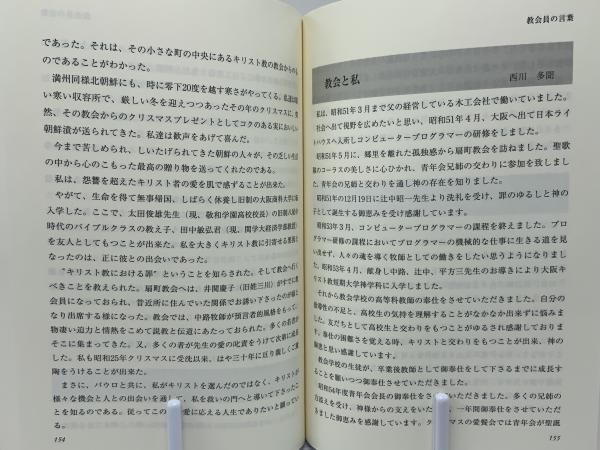 であった。それは、その小さな町の中央にあるキリスト教の教会からのも
のであることがわかった。
満州同様北朝鮮にも、時に零下20度を越す寒さがやってくる。私達は暗
い寒い収容所で、厳しい冬を迎えつつあったその年のクリスマスに、突
然、その教会からのクリスマスプレゼントとしてコクのある実においしい
朝鮮漬が送られて来た。私達は歓声をあげて喜んだ。
今まで苦しめられ、しいたげられてきた朝鮮の人々が、その正しい生活
の中から心のこもった最高の贈り物を送ってくれたのである。
私は、怨讐を超えたキリスト者の愛を肌で感ずることが出来た。
やがて、生命を得て無事帰国、しばらく休養し旧制の大阪商科大学に
入学した。ここで、太田俊雄先生（現、敬和学園高校校長）の旧制
時代のバイブルクラスの教え子、田中敏弘君（現、関学大経済学部教授）
を友人としてもつことが出来た。私を大きくキリスト教に引き寄せる
なったのは、正に彼との出会いであった。
“キリスト教における罪”ということを知らされた。そして教会へ行く
べきことを教えられた。扇町教会へは、井関慶子（旧能三川）がすでに
会員になっており、昔近所に住んでいた関係でお誘い下さったのが
なり出席する様になった。教会では、中路牧師が預言者的風格をもって
物凄い迫力と情熱をこめて説教と伝道にあたっておられた。多くの若者が
そこに集まってきた。又、多くの者が先生の愛の叱責をうけて次第に成
した。私も昭和25年クリスマスに受洗以来、はや三十年に亘り親しくご薫
陶をうけることが出来た。
まさに、パウロと共に、私がキリストを選んだのではなく、キリストが
様々な機会と人との出会いを通して、私を救いの門へと導いて下さったこ
とを知るのである。従ってこの 愛に応える人生でありたいと願ってい
る。
154
教会員の言葉
教会と私
西川 多聞
私は、昭和51年3月まで父の経営している木工会社で働いていました。
社会へ出て視野を広めたいと思い、昭和51年4月、大阪へ出て日本ライ
トハウスへ入所しコンピュータープログラマーの研修をしました。
昭和51年5月に、郷里を離れた孤独感から扇町教会を訪ねました。聖歌
隊のコーラスの美しさに心ひかれ、青年会兄姉の交わりに参加を致しま
した。青年会の兄姉と交わりを通し神の存在を知りました。
昭和51年の12月19日に辻中昭一先生より洗礼を受け、罪のゆるしと神の
子として誕生する御恵みを受け感謝しています。
昭和53年3月、コンピュータープログラマーの課程を終えました。プロ
グラマー研修の課程においてプログラマーの機械的な仕事に生きる道を見
い出せず、人々の魂を導く牧師としての働きをしたい思うようになりまし
た。昭和53年4月、献身し中路、辻中、平方三先生のお導きにより大阪キ
リスト教短期大学神学科に入学しました。
それから教会学校の高等科教師の奉仕をさせていただきました。自分の
指導性の不足と、高校生の気持を理解することがなかなか出来ずに悩みま
した。友だちとして高校生と交わりをもつことがゆるされ感謝しておりま
す。奉仕の困難さを覚える時、キリストとの交わりをもつことが出来、神の
御恵と思い感謝しています。
教会学校の生徒が、卒業後教師として御奉仕をして下さるまでに成長す
ることを願いつつ御奉仕させていただきました。
昭和54年度青年会会長の御奉仕をさせていただきました。多くの兄姉の
力添えを受け、神様からの支えをいただき、一年間御奉仕をさせていただ
きました御恵みを感謝しています。ク スマスの愛餐会では青年会が聖誕
155